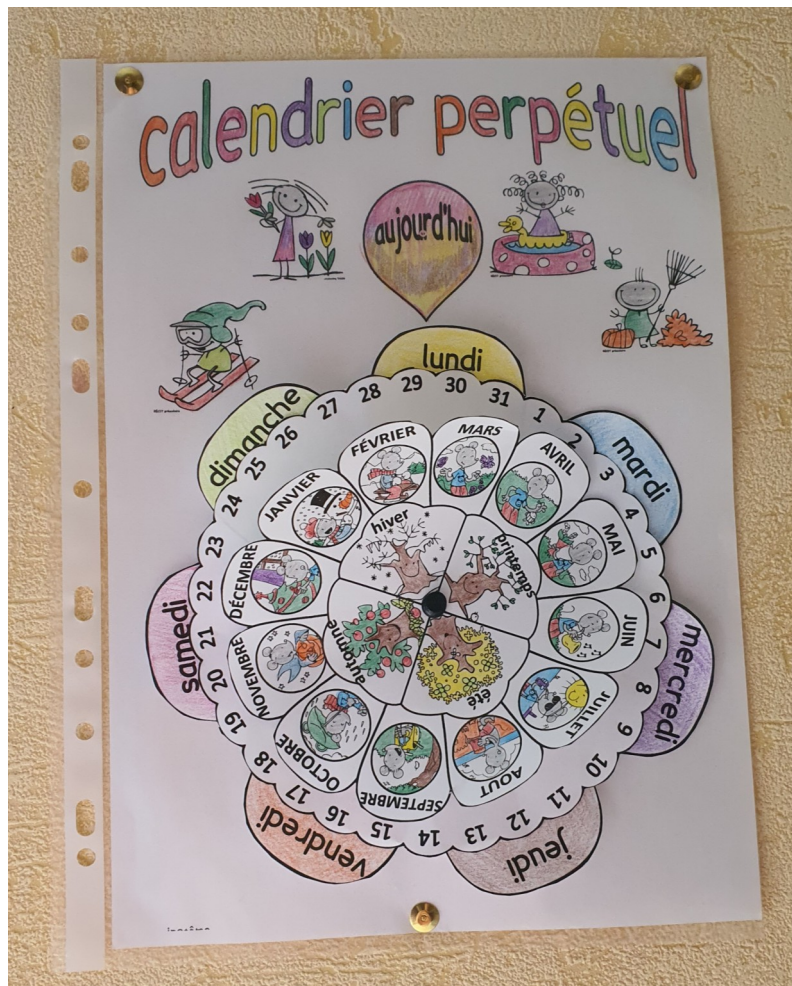 calendrier perpétuel
aujourd'hui
lundi
mardi
mercredi
jeudi
vendredi
samedi
dimanche
1
2
3
4
5
6
7
8
9
10
11
12
13
14
15
16
17
18
19
20
21
22
23
24
25
26
27
28
29
30
31
JANVIER
FÉVRIER
MARS
AVRIL
MAI
JUIN
JUILLET
AOUT
SEPTEMBRE
OCTOBRE
NOVEMBRE
DÉCEMBRE
hiver
printemps
été
automne